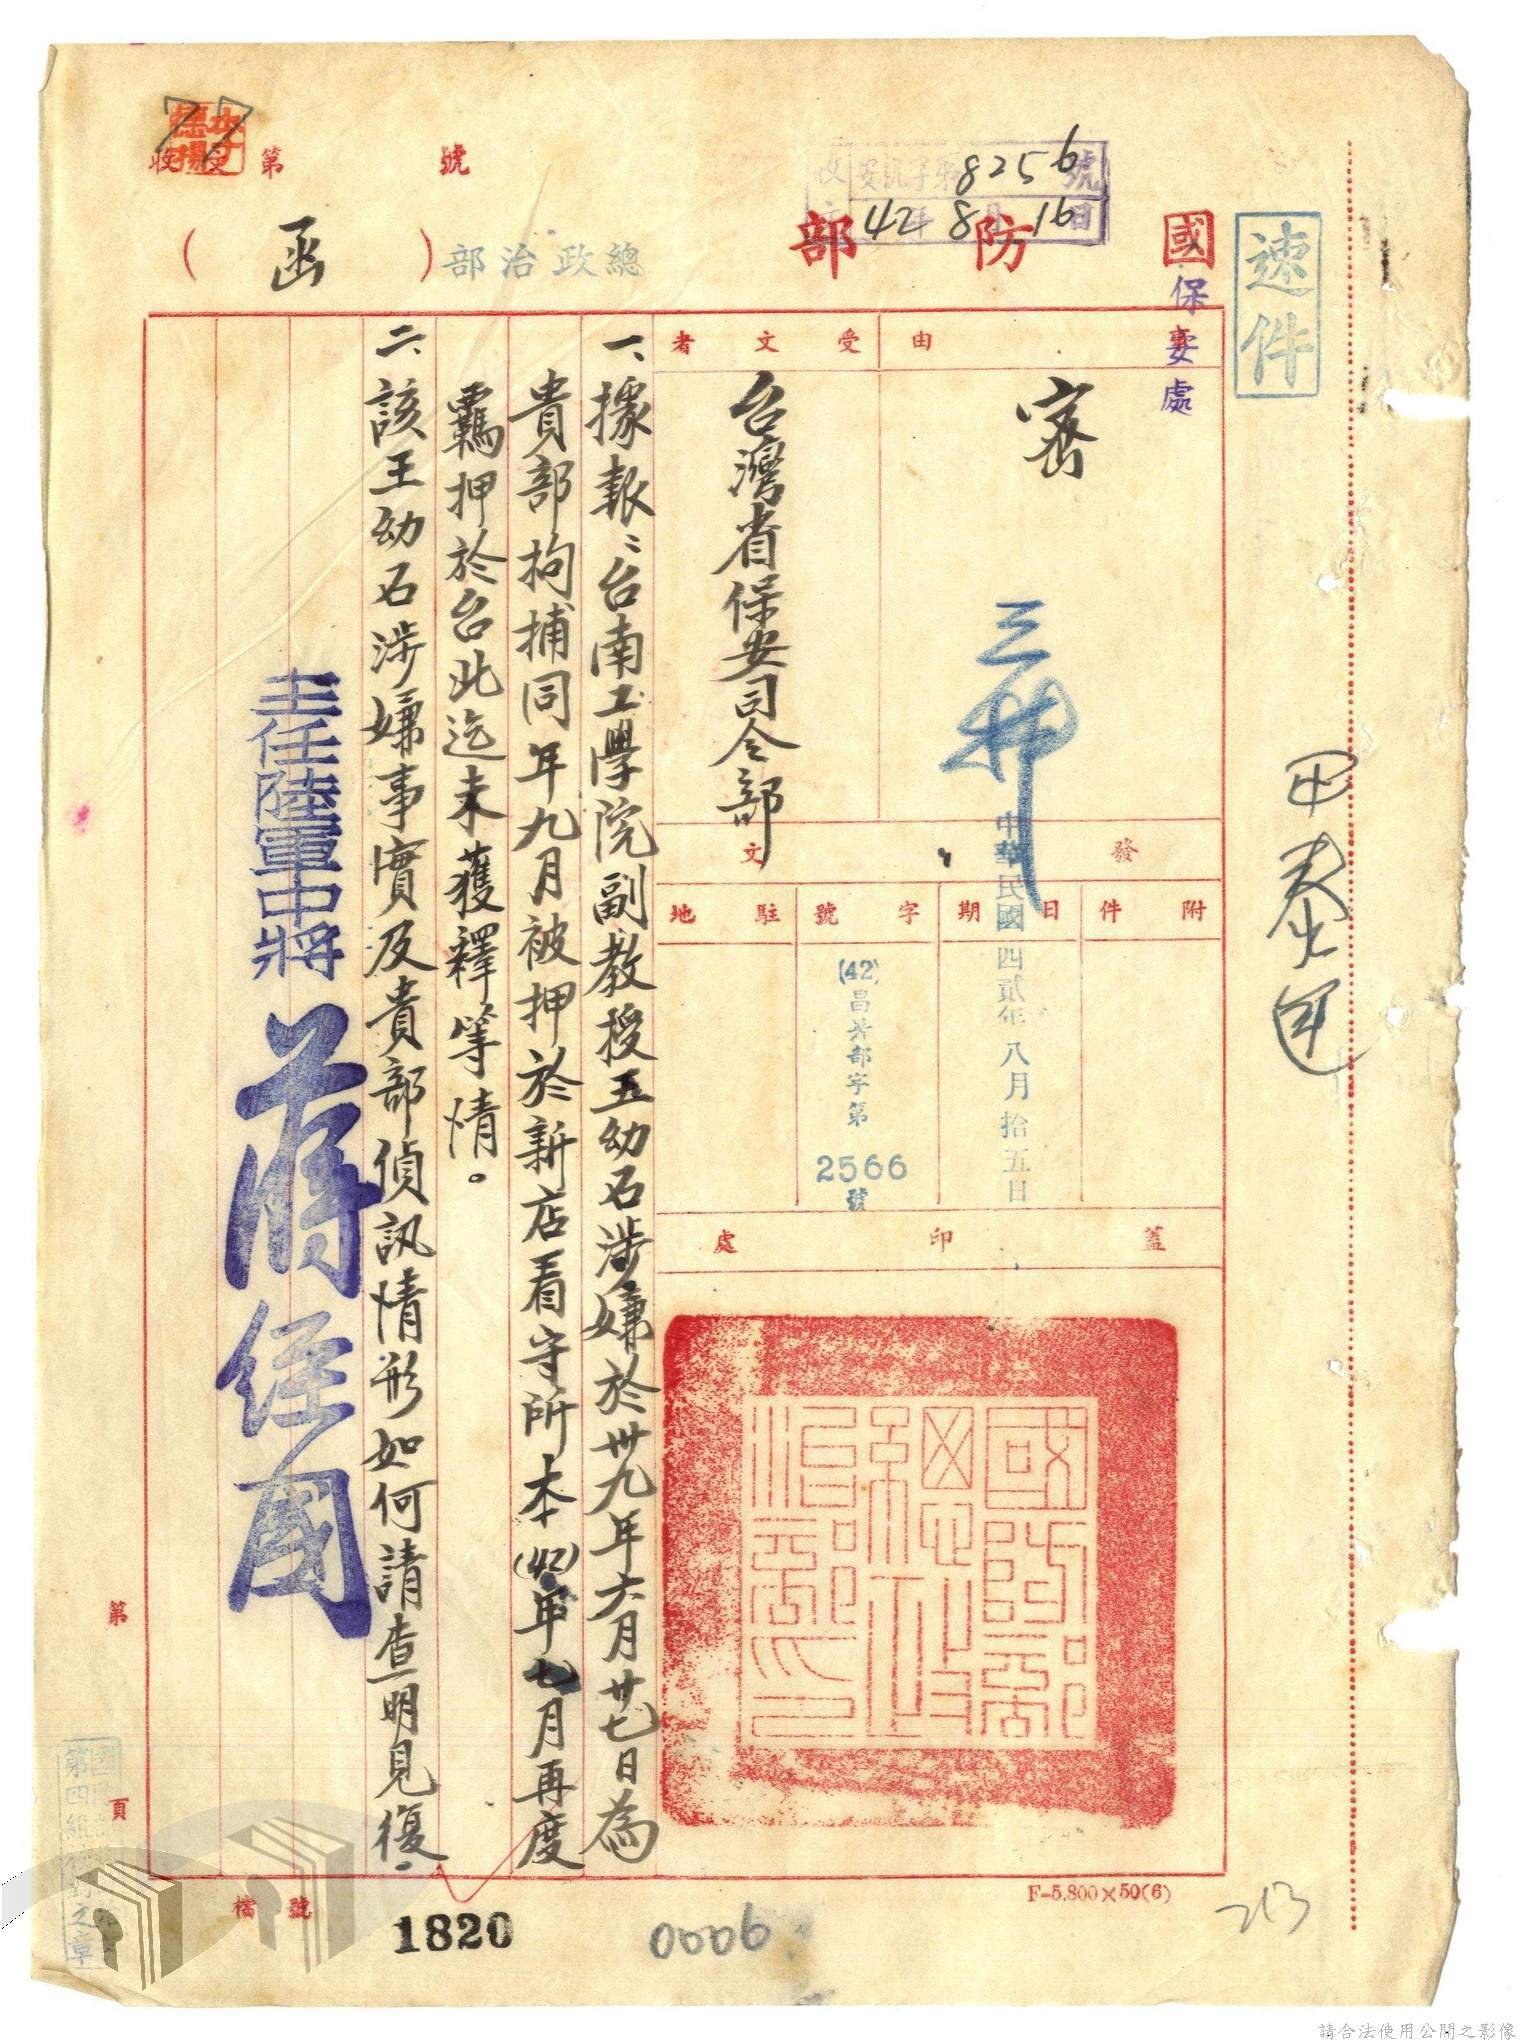 速件
國防部
總政治部
(函)
收文第 號
收文安 字第8256號
42年8月16日
保安處
由
密
受文者
台灣省保安司令部
發文
附件
日期
中華民國四貳年八月拾五日
字號
(42)昌 部字第2566號
駐地
蓋印處
國防部總政治部印
一、據報:台南工學院副教授王幼石涉嫌於卅九年六月廿七日為
貴部拘捕同年九月被押於新店看守所本(42)年七月再度
羈押於台北迄未獲釋等情。
二、該王幼石涉嫌事實及貴部偵訊情形如何請查明見復。
主任陸軍中將蔣經國
第 頁
檔號
1820
0006
F-5,800×50(6)
213
77
請合法使用公開之影像